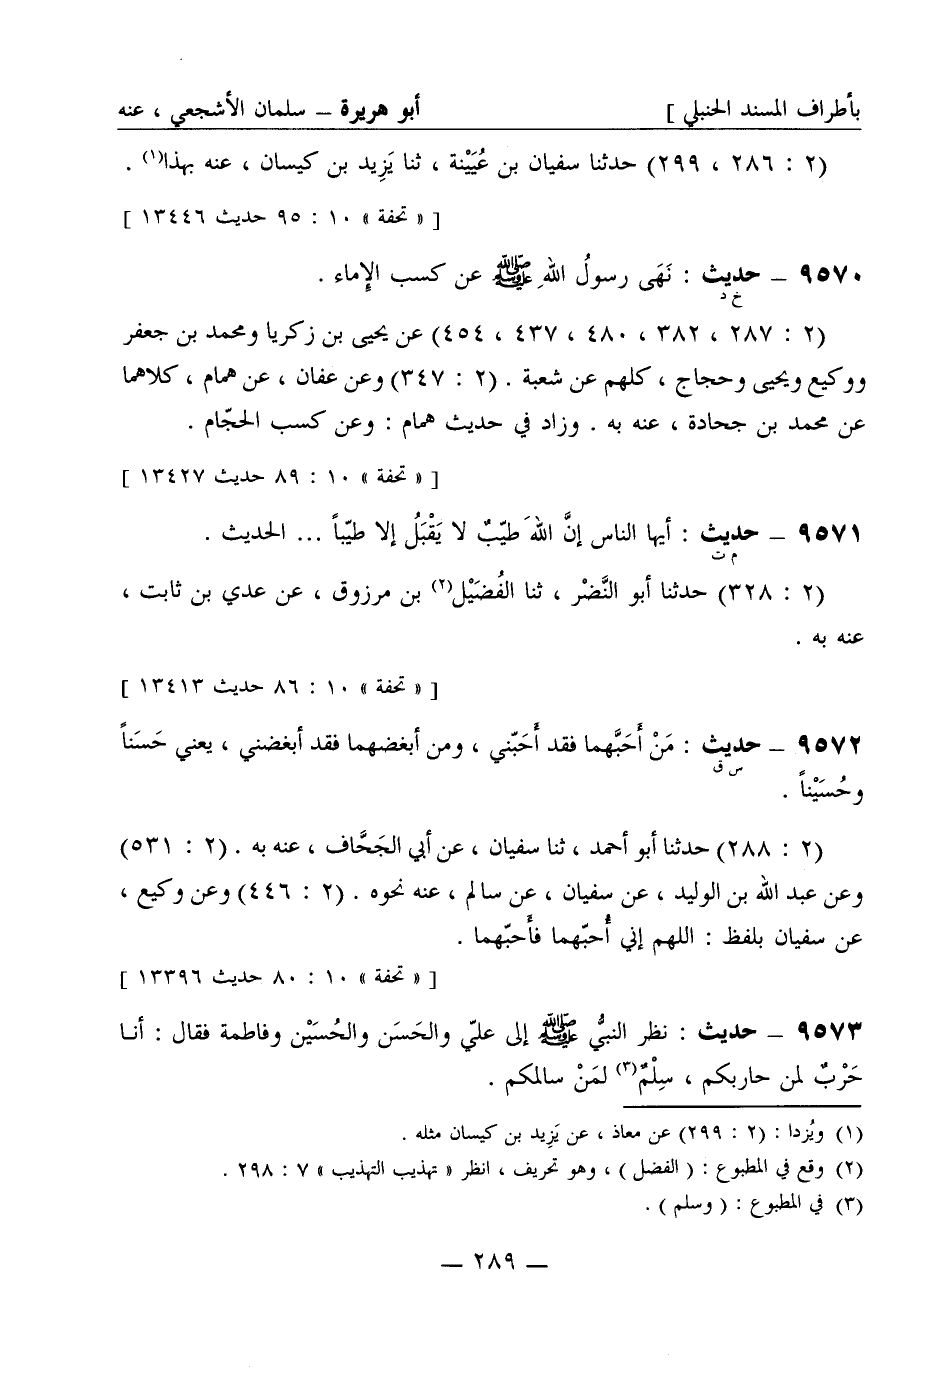 بأطراف المسند الحنبلي ] أبو هريرة ـ سلمان الأشجعي ، عنه
(٢ : ٢٨٦ ، ٢٩٩) حدثنا سفيان بن عُيَيْنة ، ثنا يَزِيد بن كيسان ، عنه بهذا(١) .
[ « تحفة » ١٠ : ٩٥ حديث ١٣٤٤٦ ]
٩٥٧٠ ـ حديث : نَهَى رسولُ اللهِ ﷺ عن كسب الإِماء .
خ د
(٢ : ٢٨٧ ، ٣٨٢ ، ٤٨٠ ، ٤٣٧ ، ٤٥٤) عن يحيى بن زكريا ومحمد بن جعفر
ووكيع ويحيى وحجاج ، كلهم عن شعبة . (٢ : ٣٤٧) وعن عفان ، عن همام ، كلاهما
عن محمد بن جحادة ، عنه به . وزاد في حديث همام : وعن كسب الحجّام .
[ « تحفة » ١٠ : ٨٩ حديث ١٣٤٢٧ ]
٩٥٧١ ـ حديث : أيها الناس إنَّ اللهَ طيّبٌ لا يَقْبَلُ إلا طيّباً ... الحديث .
م ت
(٢ : ٣٢٨) حدثنا أبو النَّضْر ، ثنا الفُضَيْل(٢) بن مرزوق ، عن عدي بن ثابت ،
عنه به .
[ « تحفة » ١٠ : ٨٦ حديث ١٣٤١٣ ]
٩٥٧٢ ـ حديث : مَنْ أَحَبَّهما فقد أَحَبّني ، ومن أبغضهما فقد أبغضني ، يعني حَسَناً
س ق
وحُسَيْناً .
(٢ : ٢٨٨) حدثنا أبو أحمد ، ثنا سفيان ، عن أبي الجَحَّاف ، عنه به . (٢ : ٥٣١)
وعن عبد الله بن الوليد ، عن سفيان ، عن سالم ، عنه نحوه . (٢ : ٤٤٦) وعن وكيع ،
عن سفيان بلفظ : اللهم إني أُحبّهما فأَحبّهما .
[ « تحفة » ١٠ : ٨٠ حديث ١٣٣٩٦ ]
٩٥٧٣ ـ حديث : نظر النبيُّ ﷺ إلى عليّ والحَسَن والحُسَيْن وفاطمة فقال : أنا
حَرْبٌ لمن حاربكم ، سِلْمٌ(٣) لمَنْ سالمكم .
(١) ويُزدا : (٢ : ٢٩٩) عن معاذ ، عن يَزِيد بن كيسان مثله .
(٢) وقع في المطبوع : ( الفضل ) ، وهو تحريف ، انظر « تهذيب التهذيب » ٧ : ٢٩٨ .
(٣) في المطبوع : ( وسلم ) .
ـ ٢٨٩ ـ